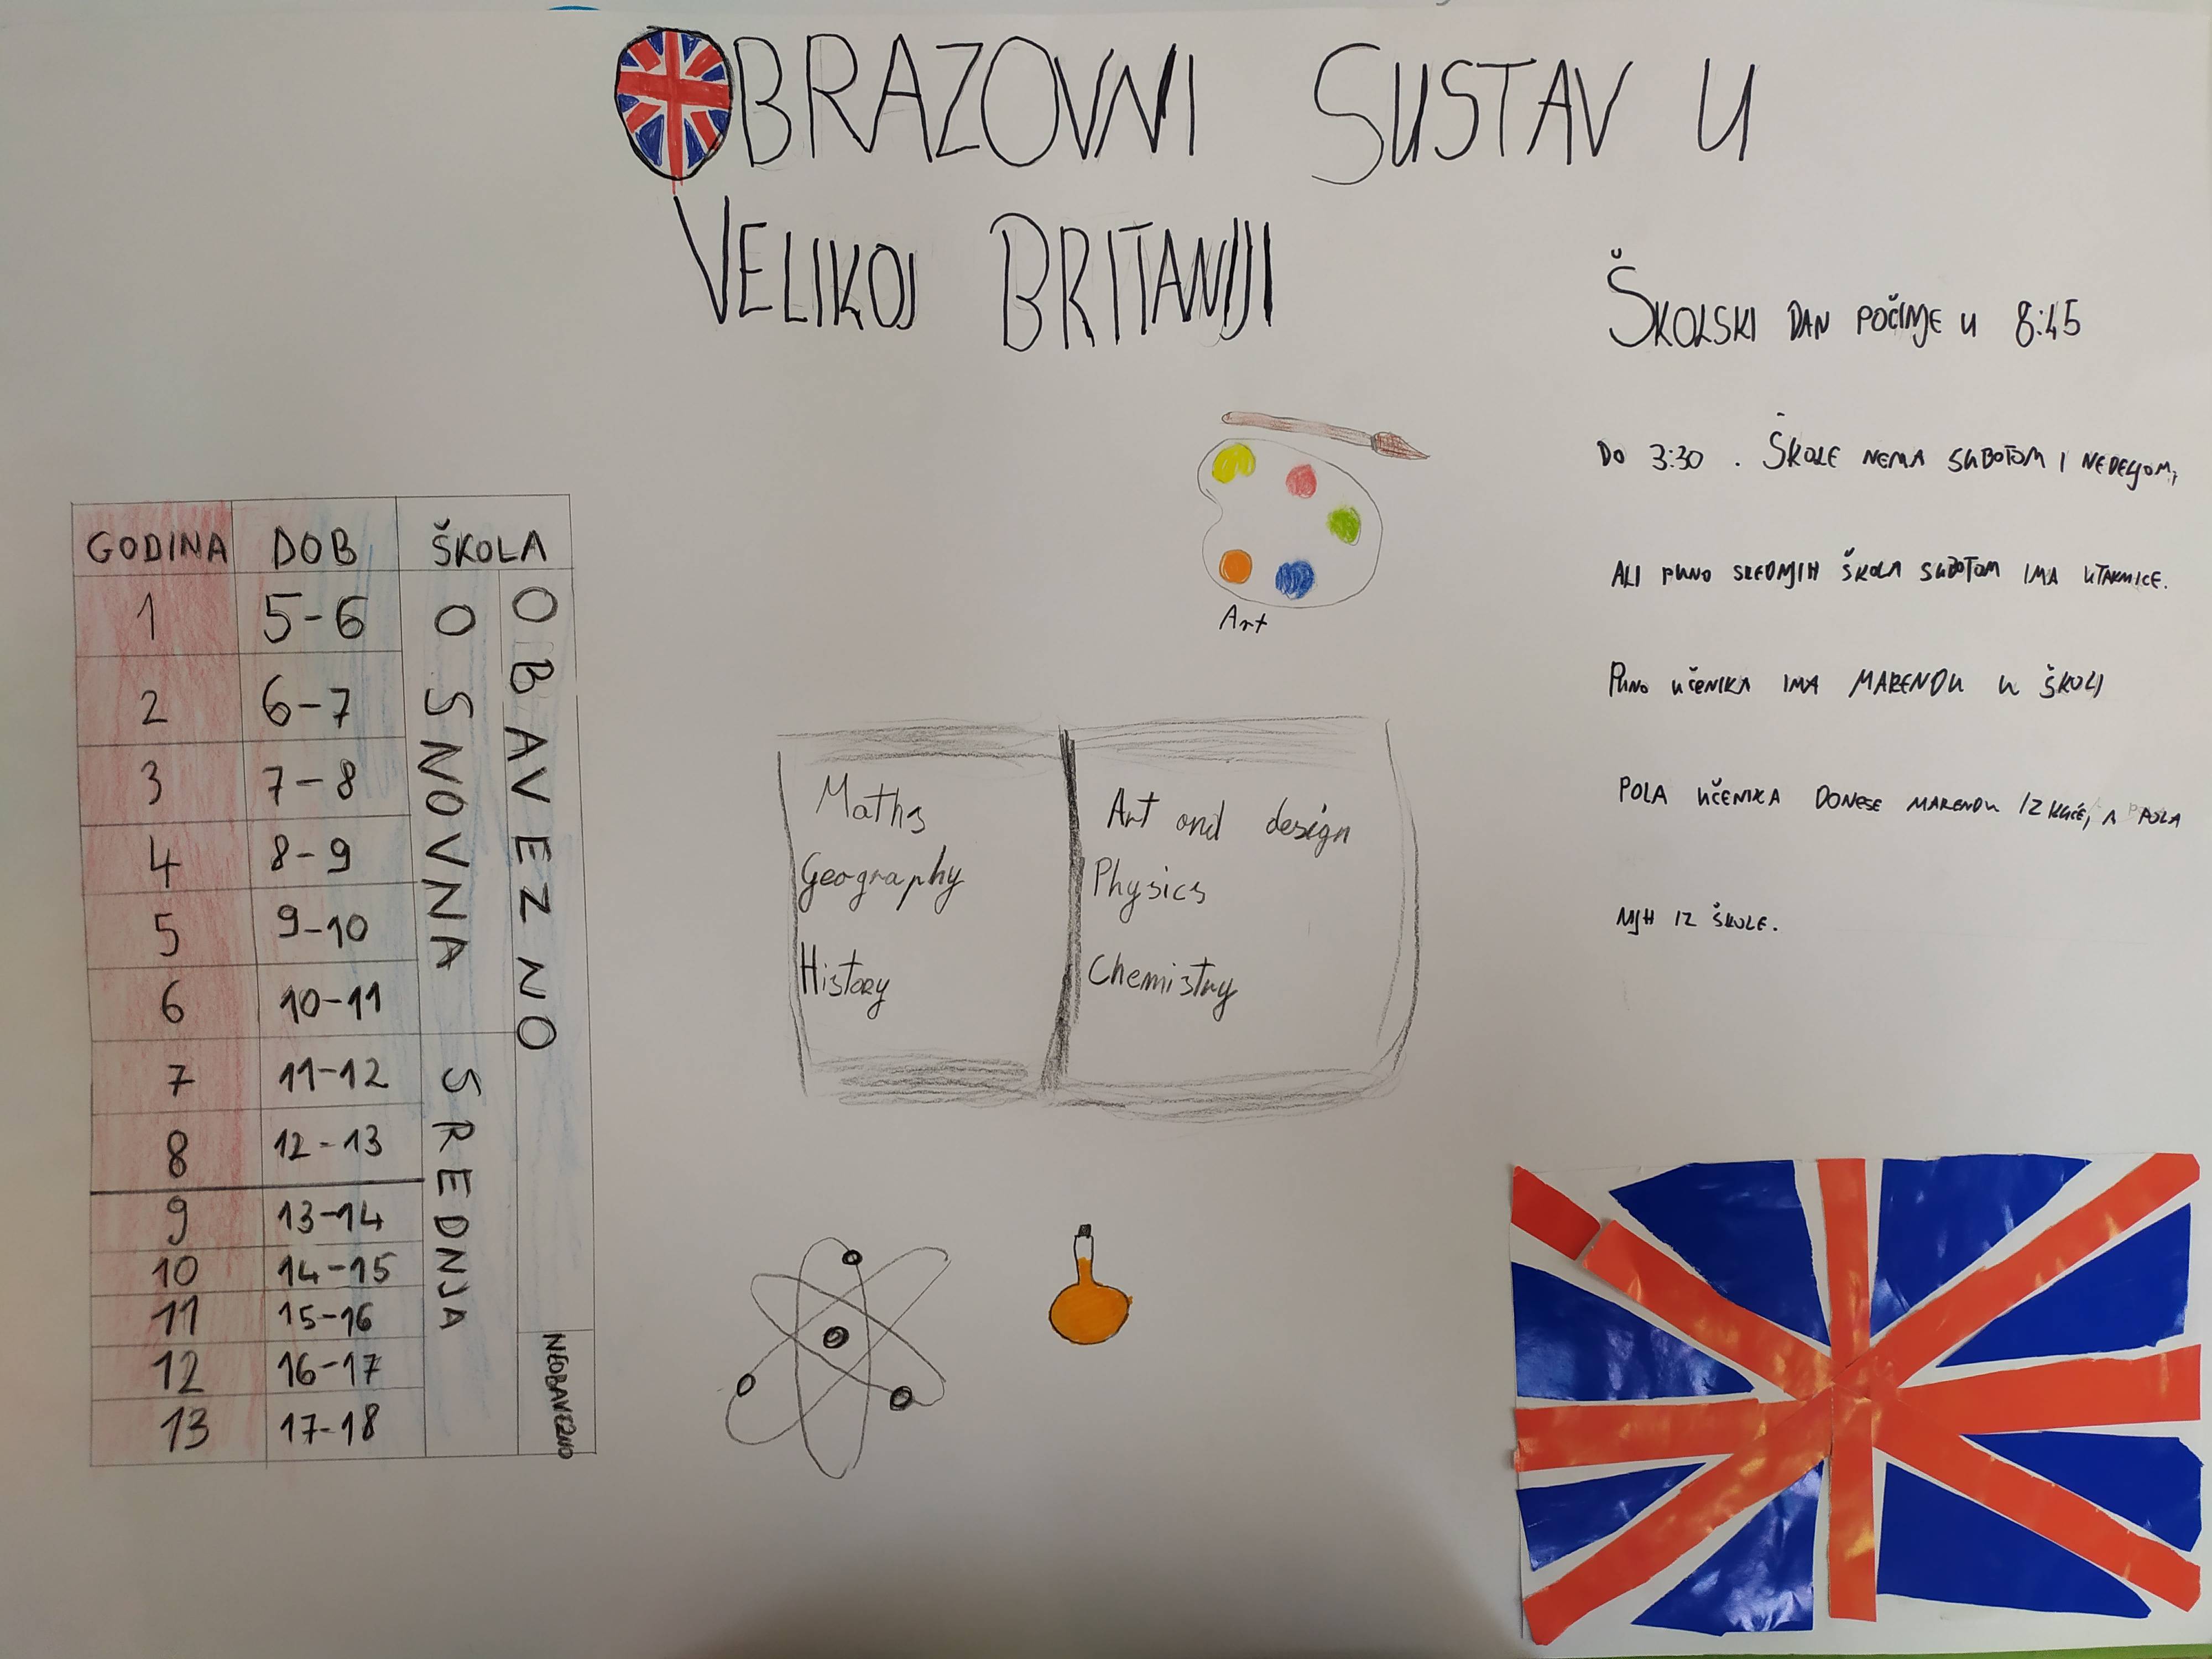 OBRAZOVNI SUSTAV U
VELIKOJ BRITANIJI
ŠKOLSKI DAN POČINJE U 8:45
DO 3:30 . ŠKOLE NEMA SUBOTOM I NEDELJOM,
ALI PUNO SREDNJIH ŠKOLA SUBOTOM IMA UTAKMICE.
PUNO UČENIKA IMA MARENDU U ŠKOLI
POLA UČENIKA DONESE MARENDU IZ KUĆE, A POLA
NJIH IZ ŠKOLE.
GODINA DOB ŠKOLA
1 5-6
2 6-7
3 7-8
4 8-9
5 9-10
6 10-11
7 11-12
8 12-13
9 13-14
10 14-15
11 15-16
12 16-17
13 17-18
OSNOVNA
SREDNJA
OBAVEZNO
NEOBAVEZNO
Art
Maths
Geography
History
Art and design
Physics
Chemistry